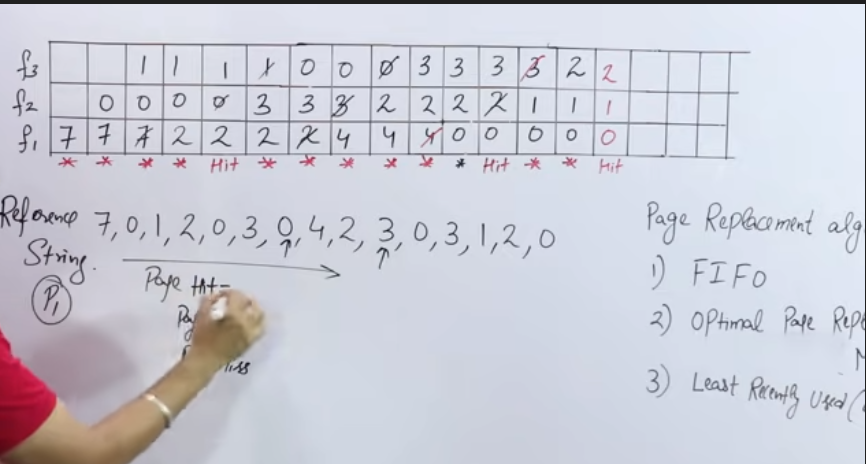 f3 1 1 1 1 0 0 0 3 3 3 3 2 2
f2 0 0 0 0 3 3 3 2 2 2 2 1 1 1
f1 7 7 7 2 2 2 2 4 4 4 0 0 0 0 0
* * * * Hit * * * * * * Hit * * Hit
Reference 7, 0, 1, 2, 0, 3, 0, 4, 2, 3, 0, 3, 1, 2, 0
String.
P1
Page Hit-
Page Replacement alg
1) FIFO
2) Optimal Page Repl
3) Least Recently Used (